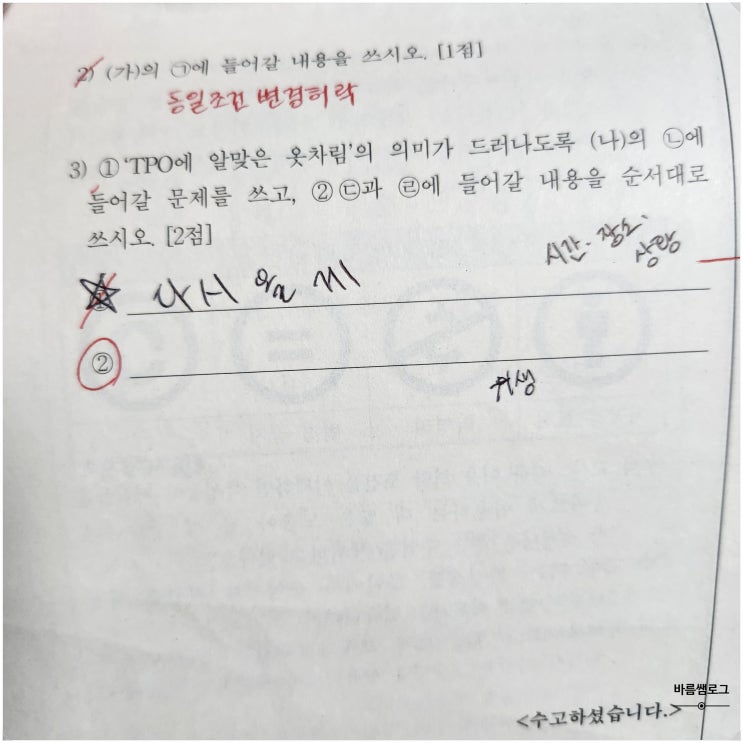 2) (가)의 ㉠에 들어갈 내용을 쓰시오. [1점]
동일조건 변경허락
3) ① 'TPO에 알맞은 옷차림'의 의미가 드러나도록 (나)의 ㉡에
들어갈 문제를 쓰고, ② ㉢과 ㉣에 들어갈 내용을 순서대로
쓰시오. [2점]
시간·장소·
상황
다시
②
위생
바름쌤로그
<수고하셨습니다.>